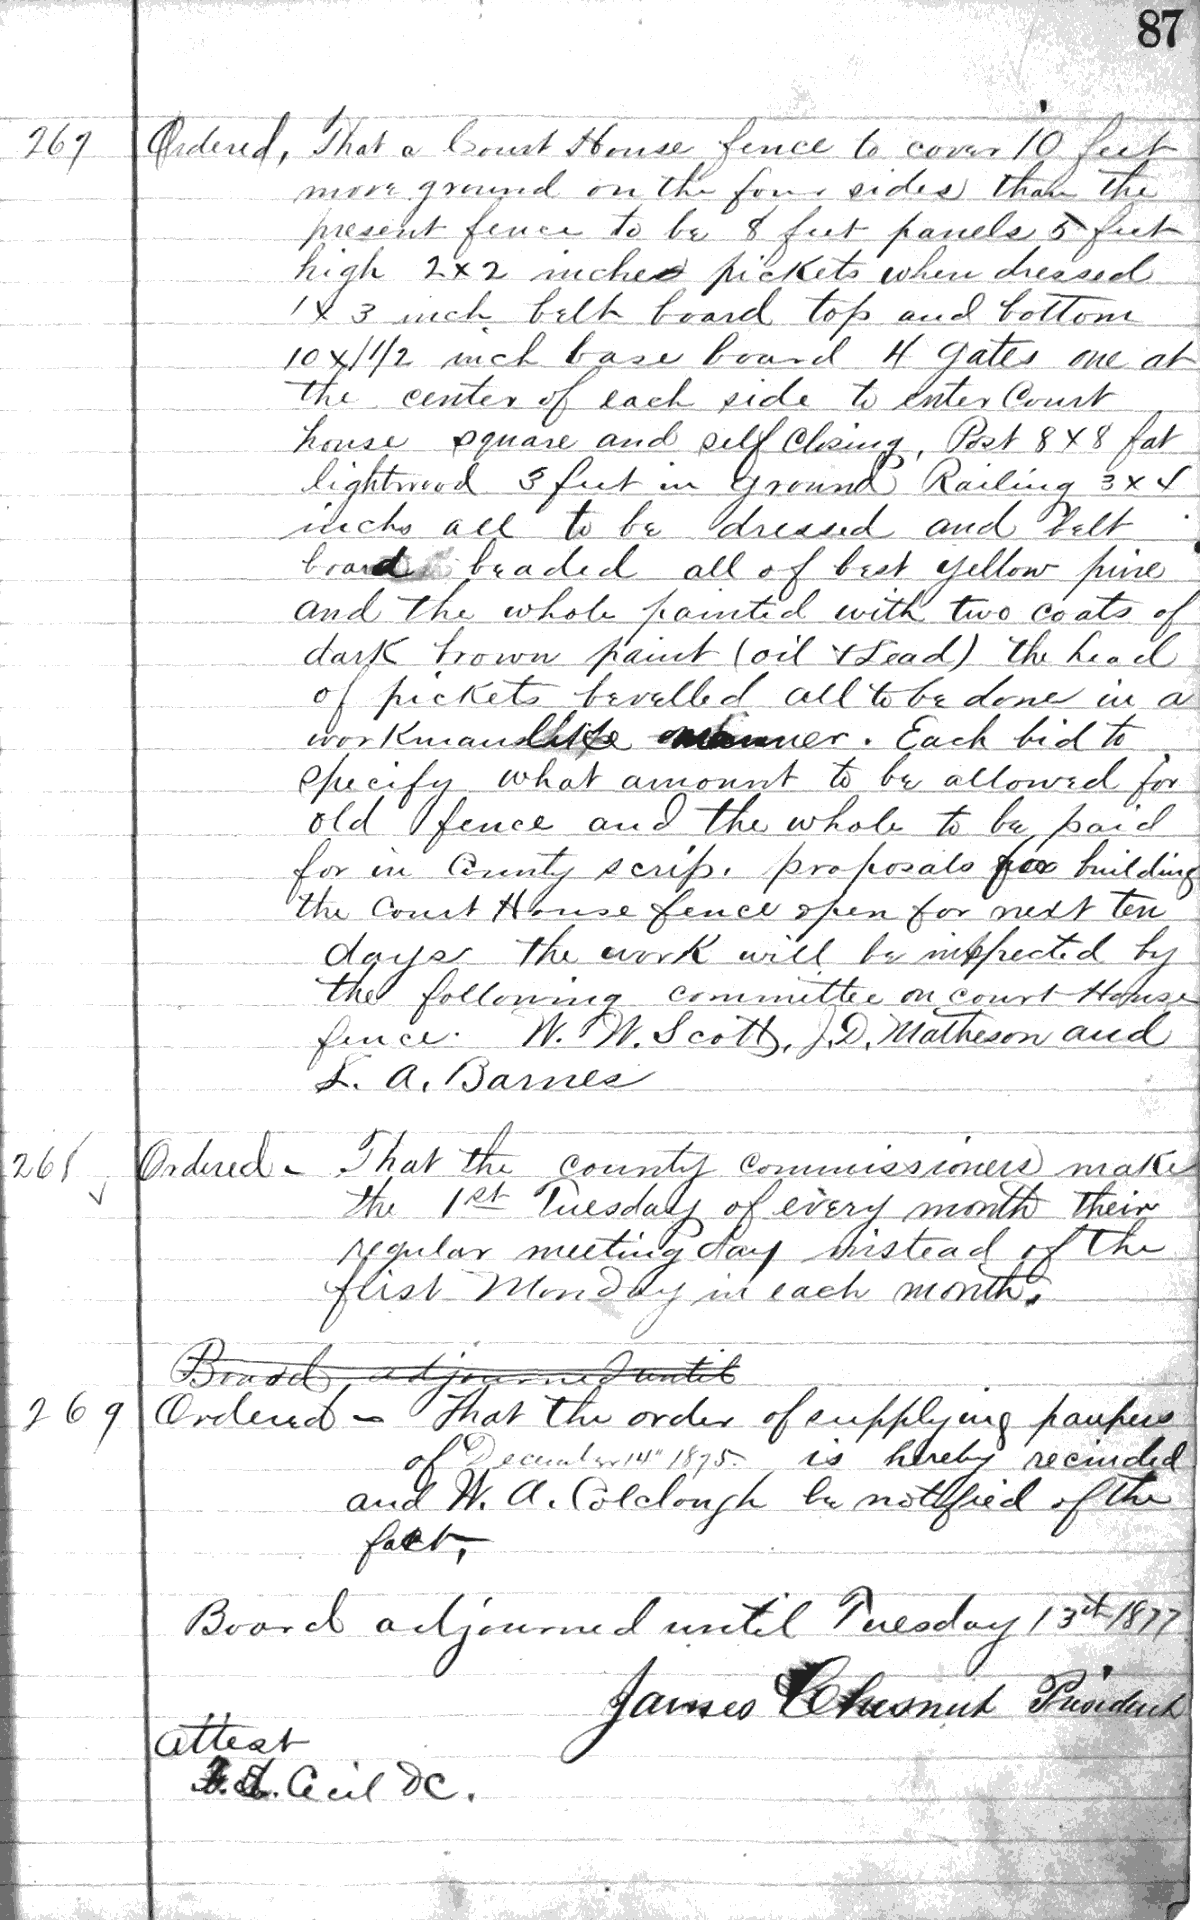 87
267 Ordered, That a Court House fence to cover 10 feet
more ground on the four sides than the
present fence to be 8 feet panels 5 feet
high 2x2 inches pickets when dressed
1x3 inch belt board top and bottom
10x1 1/2 inch base board 4 gates one at
the center of each side to enter Court
house square and self closing, Post 8x8 fat
lightwood 3 feet in ground Railing 3x4
inchs all to be dressed and belt
board beaded all of best yellow pine
and the whole painted with two coats of
dark brown paint (oil & Lead) the head
of pickets bevelled all to be done in a
workmanslike manner. Each bid to
specify what amount to be allowed for
old fence and the whole to be paid
for in County scrip. proposals for building
the Court House fence open for next ten
days the work will be inspected by
the following committee on court House
fence. W. W. Scott, J. D. Matheson and
L. A. Barnes
268 Ordered - That the county commissioners make
the 1st Tuesday of every month their
regular meeting day instead of the
first Monday in each month.
Board adjourned until
269 Ordered - That the order of supplying paupers
of December 14" 1875. is hereby recinded
and W. A. Colclough be notified of the
fact,
Board adjourned until Tuesday 13th 1877
James Chesnut President
Attest
Cecil DC.